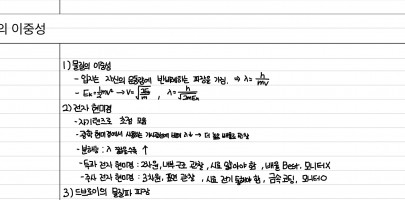 의 이중성
1) 물질의 이중성
- 입자는 자신의 운동량에 반비례하는 파장을 가짐. ⇒ λ = h/mv
- Ek = ½mv² → v = √(2E/m) , λ = h/√(2mEk)
2) 전자 현미경
- 자기렌즈로 초점 모음
- 광학 현미경에서 사용하는 가시광선에 비해 λ↓ → 더 높은 배율로 관찰
- 분해능 : λ 짧을수록 ↑
- 투과 전자 현미경 : 2차원, 내부 구조 관찰, 시료 얇아야 함, 배율 Best, 모니터X
- 주사 전자 현미경 : 3차원, 표면 관찰, 시료 전기 전도해야 함, 금속 코팅, 모니터O
3) 드브로이의 물질파 파장